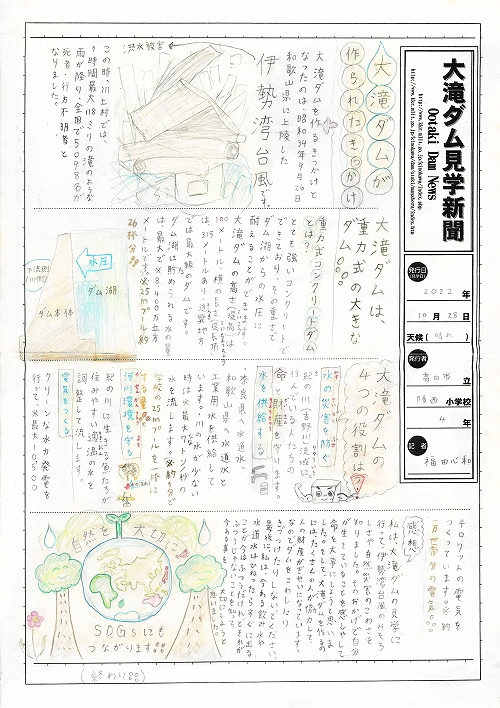 大滝ダム見学新聞
Ootaki Dam News
発行日
2022 年
10 月 28 日
天候( 晴れ )
発行者
小学校
4 年
記者
福田心和
大滝ダムが
作られたきっかけ
大滝ダムを作るきっかけと
なったのは、昭和34年9月26日
和歌山県に上陸した
伊勢湾台風です。
洪水被害
この時、川上村では、
1時間最大118ミリの滝のような
雨が降り、全国で5098名が
死者・行方不明者と
なりました。
大滝ダムは、
重力式の大きな
ダム。
重力式コンクリートダム
とは?
とても強いコンクリートで
できており、その重さで
ダム湖からの水圧に
耐えることができます。
大滝ダムの高さ(堤高)は
100メートル、横の長さ(堤頂長)
は315メートルあり、近畿地方
では最大級のダムです。
ダム湖に貯められる水の量
は最大で8400万立方
メートルです。※25mプール約
26杯分!!
水圧
ダム湖
ダム本体
下流側
(川側)
大滝ダムの
4つの役割は?
水の災害を防ぐ
紀の川(吉野川)流域に
住んでいる人たちの
命と財産を守ります。
水を供給する
奈良県へ水道水
和歌山県へ水道水と
工業用水を供給して
います。川の水が少ない
時は最大7トン/秒の
水を流します。
学校の25mプールを1杯に
河川環境を守る
紀の川に生きる魚たちが
住みやすい適温の水を
調整して流します。
電気をつくる
クリーンな水力発電を
行って、最大10500
キロワットの電気を
つくっています。※約
一万世帯分の電気。
感想
私は、大滝ダムの見学に
行って、伊勢湾台風のおそろ
しさや自然災害のこわさを
知りました。そのおかげで自分
が生きていることを感しゃして
命を大事にしようと思いま
した。そして、大滝ダムを作るの
にはたくさんの人が協力して、
人の財産がぎせいになっています。
なのでダムをこわしたり
きずつけたりしないでください。
最後に、私は今ある飲み水や
水道水はひねったらすぐに出る
ことが今はふつうだけど、それが
ふつうじゃないことを知って、
今ある事を大切にしようと
思いました。
自然を大切に!
SDGsにも
つながります!!
(終わり)